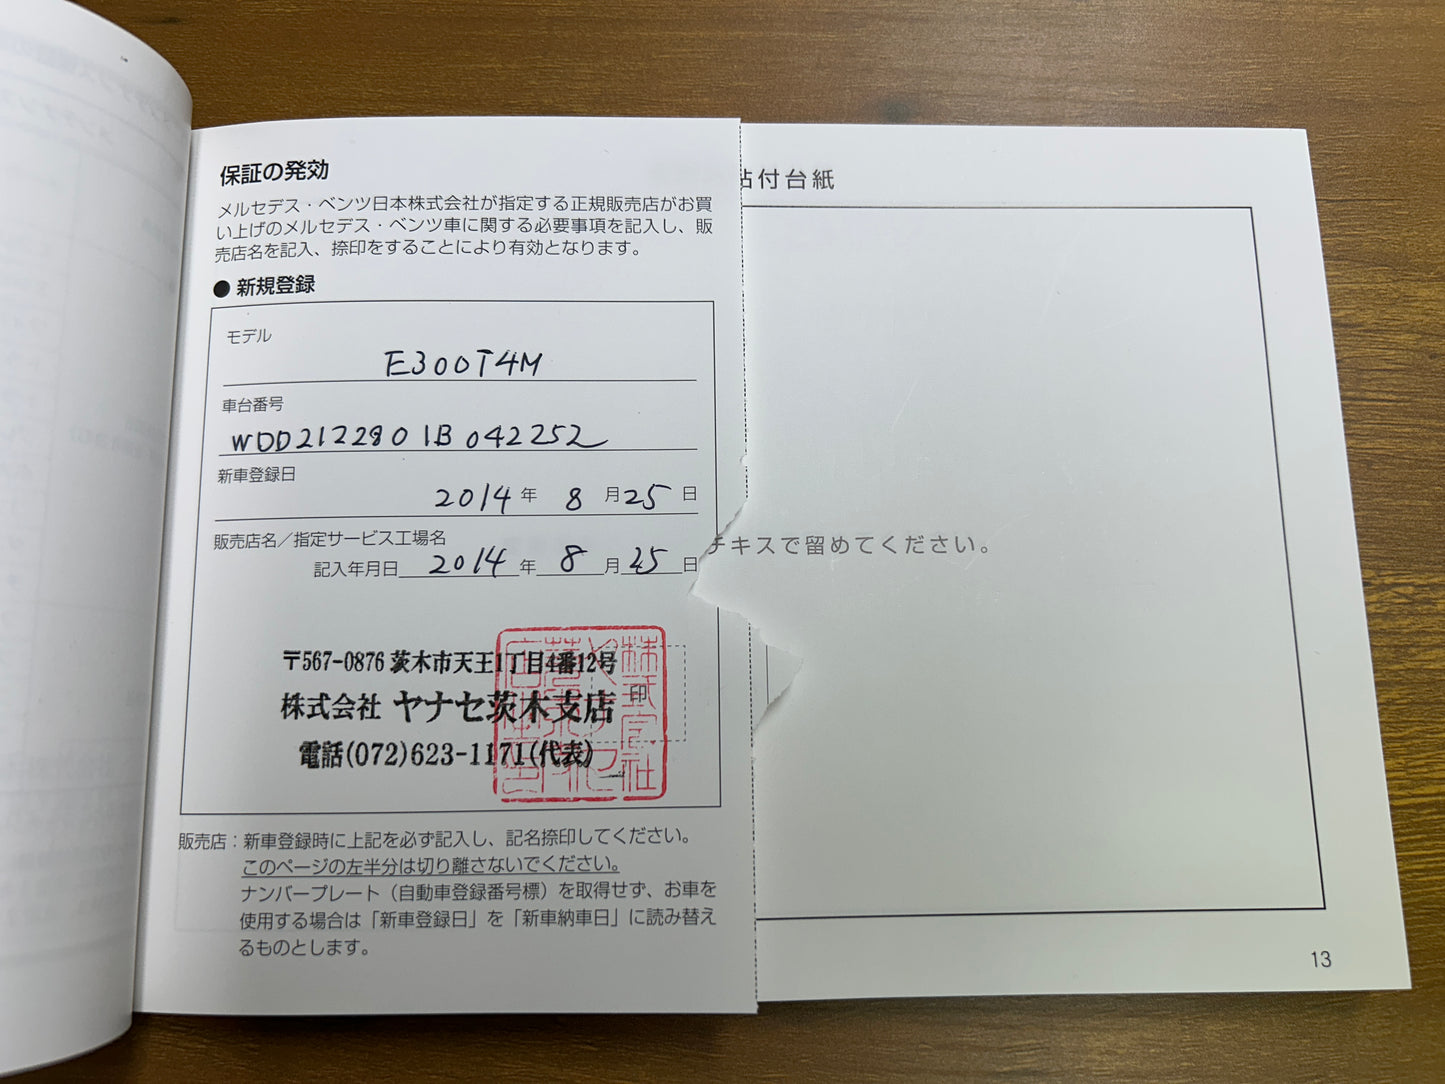 保証の発効
メルセデス・ベンツ日本株式会社が指定する正規販売店がお買
い上げのメルセデス・ベンツ車に関する必要事項を記入し、販
売店名を記入、捺印をすることにより有効となります。
● 新規登録
モデル
E300T4M
車台番号
WDD2122801B042252
新車登録日
2014年 8月25日
販売店名／指定サービス工場名
記入年月日 2014年 8月25日
〒567-0876 茨木市天王1丁目4番12号
株式会社 ヤナセ茨木支店
電話(072)623-1171(代表)
印
販売店：新車登録時に上記を必ず記入し、記名捺印してください。
このページの左半分は切り離さないでください。
ナンバープレート（自動車登録番号標）を取得せず、お車を
使用する場合は「新車登録日」を「新車納車日」に読み替え
るものとします。
付台紙
チキスで留めてください。
13